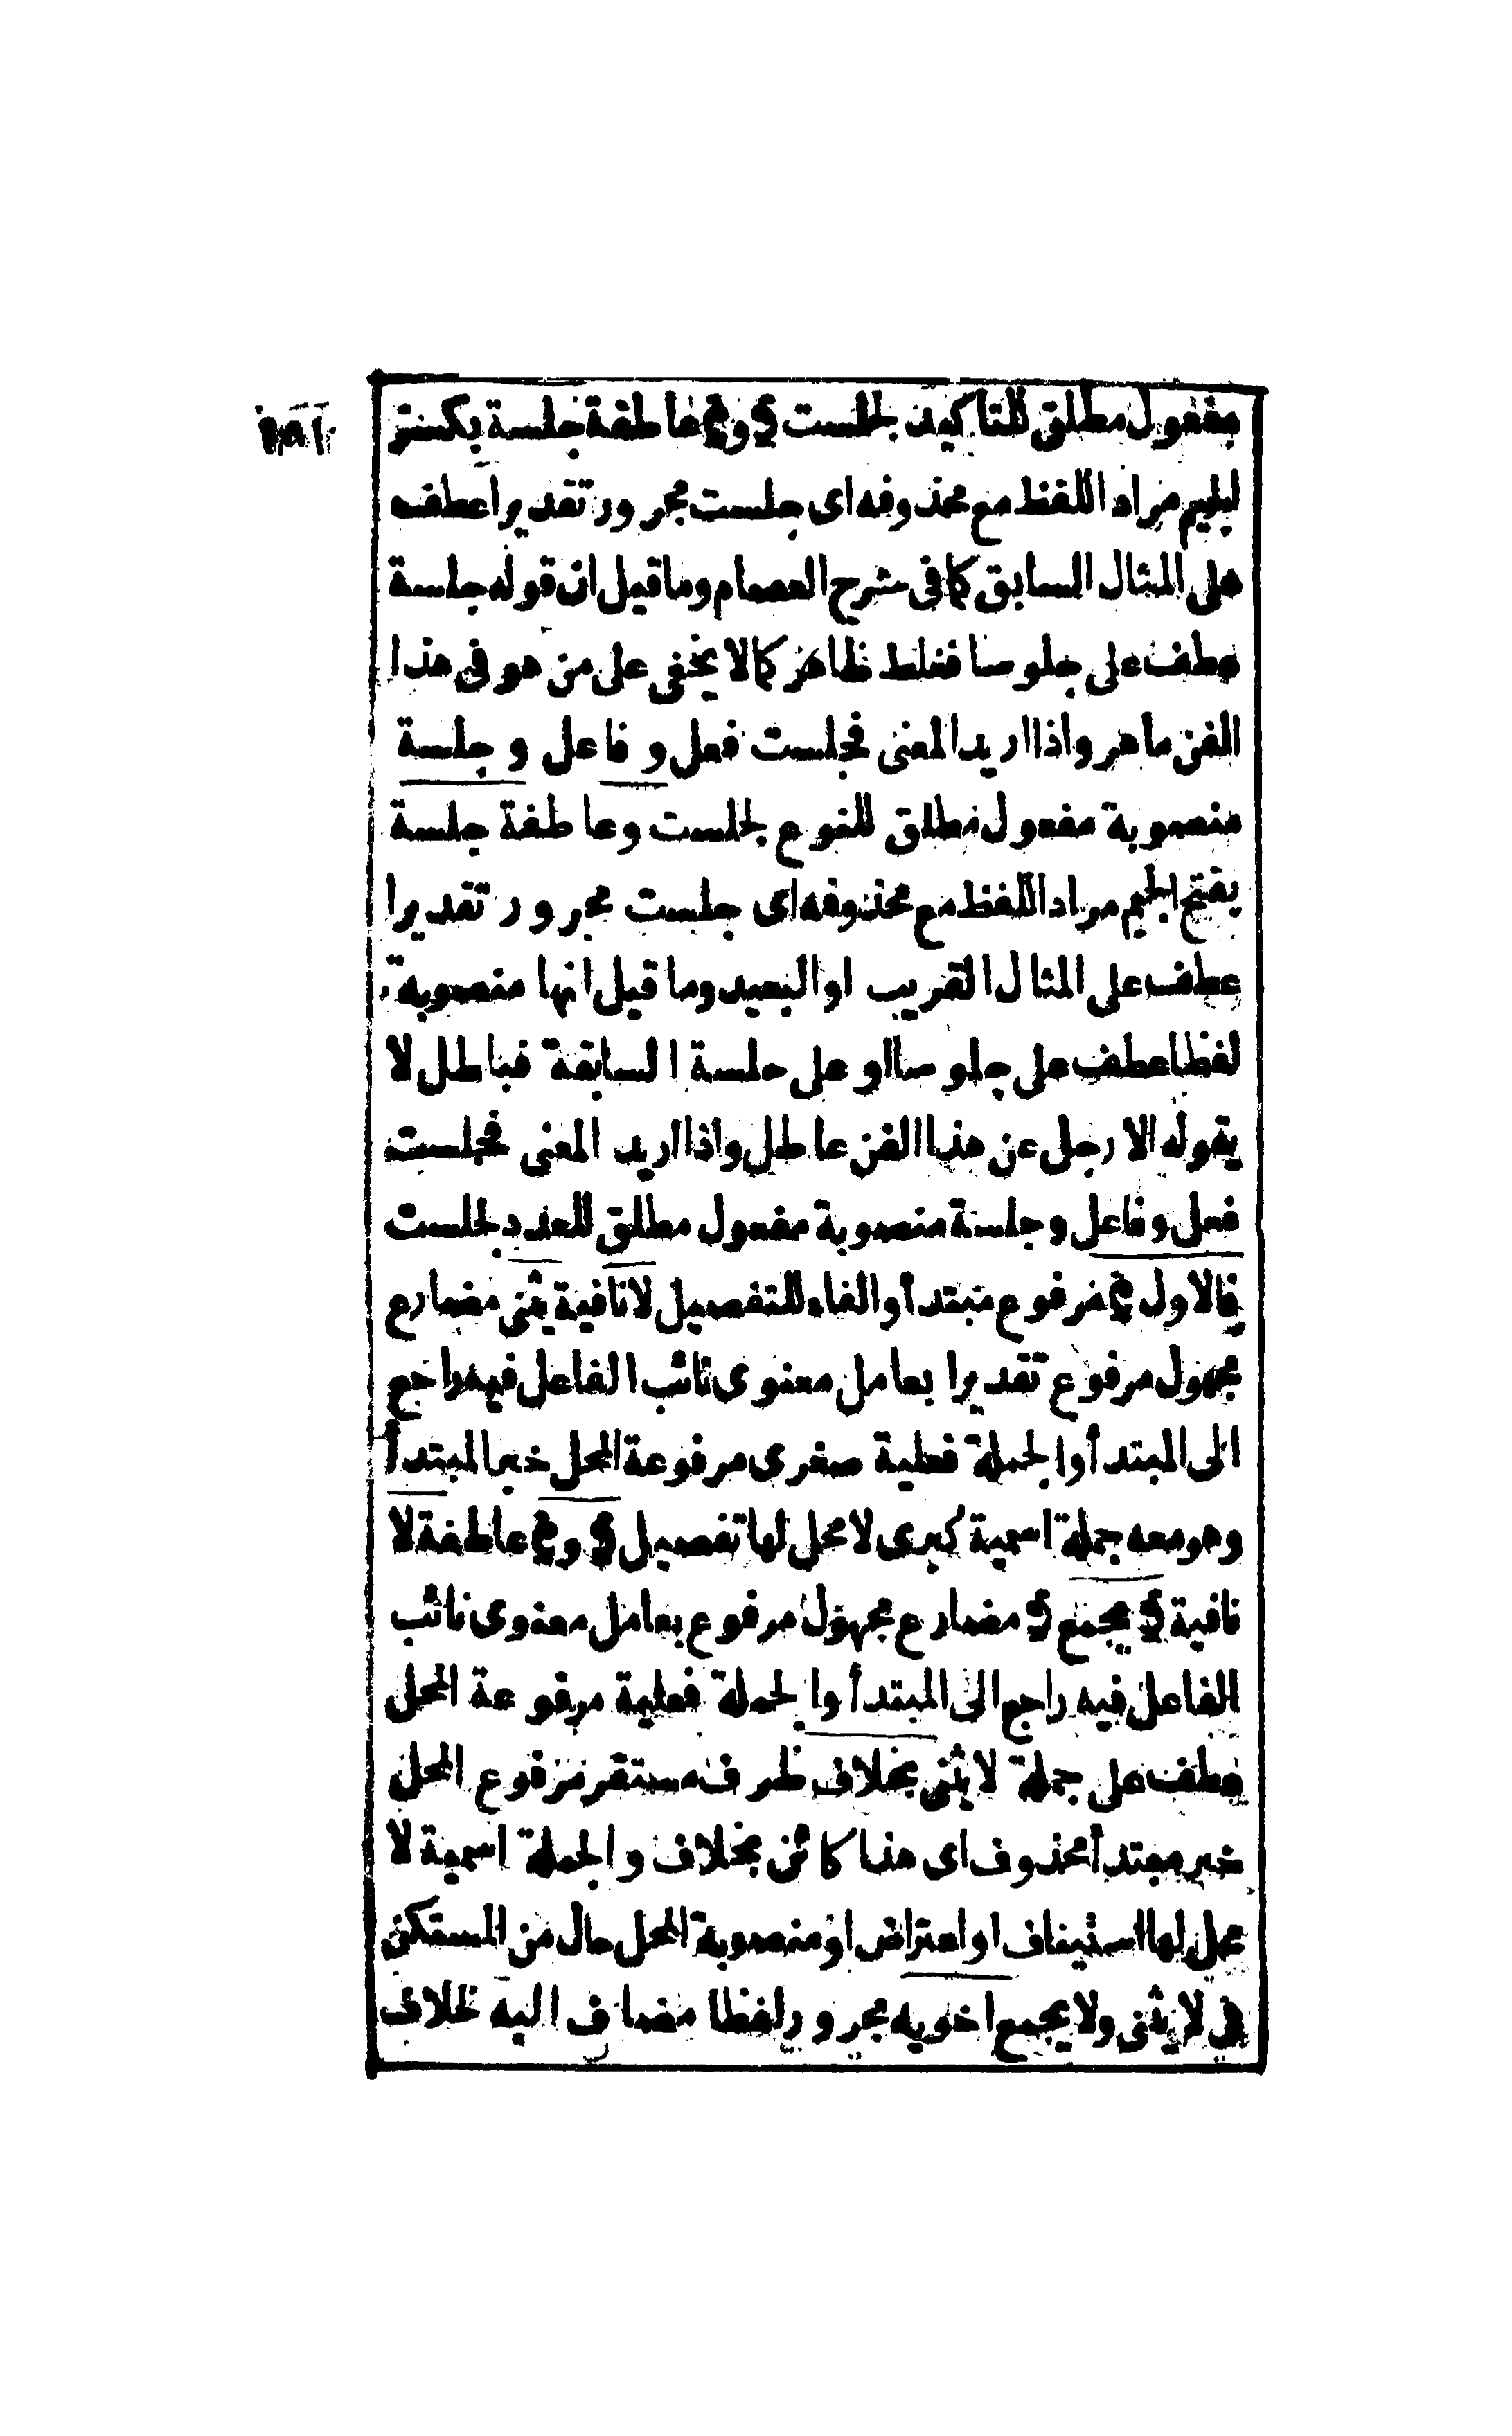 مفعول مطلق للتاكيد لجلست و عاطفة جلسة بكسر
الجيم مراد اللفظ مع محذوفه اى جلست مجرور تقديرا عطف
على المثال السابق كما فى شرح العصام وما قيل ان قوله جلسة
عطف على جلوسا فغلط ظاهر كما لا يخفى على من هو فى هذا
الفن ماهر واذا اريد المعنى فجلست فعل و فاعل و جلسة
منصوبة مفعول مطلق للنوع لجلست وعاطفة جلسة
بفتح الجيم مراد اللفظ مع محذوفه اى جلست مجرور تقديرا
عطف على المثال القريب او البعيد وما قيل انها منصوبة
لفظا عطف على جلوسا او على جلسة السابقة فباطل لا
يقوله الا رجل عن هذا الفن عاطل واذا اريد المعنى فجلست
فعل وفاعل وجلسة منصوبة مفعول مطلق للعدد لجلست
فالاول مرفوع مبتدأ والفاء للتفصيل لا نافية يثنى مضارع
مجهول مرفوع تقديرا بعامل معنوى نائب الفاعل فيه راجع
الى المبتدأ والجملة فعلية صغرى مرفوعة المحل خبر المبتدأ
وهو معه جملة اسمية كبرى لا محل لها تفصيل و عاطفة لا
نافية يجمع مضارع مجهول مرفوع بعامل معنوى نائب
الفاعل فيه راجع الى المبتدأ والجملة فعلية مرفوعة المحل
عطف على جملة لا يثنى بخلاف ظرف مستقر مرفوع المحل
خبر مبتدأ محذوف اى هذا كائن بخلاف والجملة اسمية لا
محل لها استيناف او اعتراض او منصوبة المحل حال من المستكن
فى لا يثنى ولا يجمع اخويه مجرور لفظا مضاف اليه لخلاف